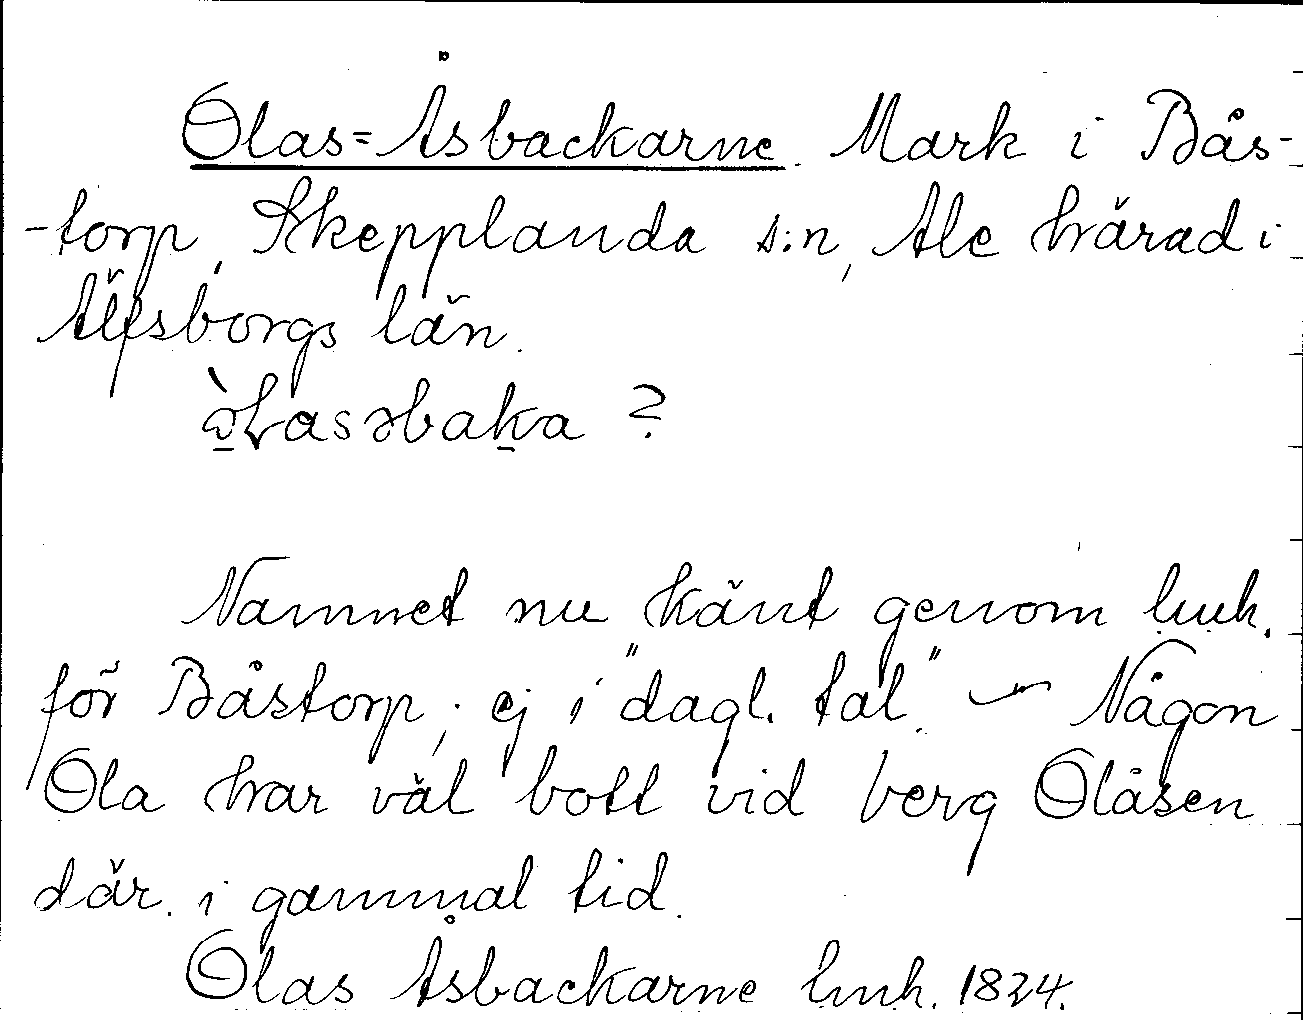 Olas=Åsbackarne. Mark i Bås-
-torp, Skepplanda s:n, Ale härad i
Älfsborgs län.
?
Namnet nu känt genom lmh.
för Båstorp; ej i "dagl. tal". — Någon
Ola har väl bott vid berg Olåsen
där. i gammal tid.
Olas Åsbackarne lmh. 1824.